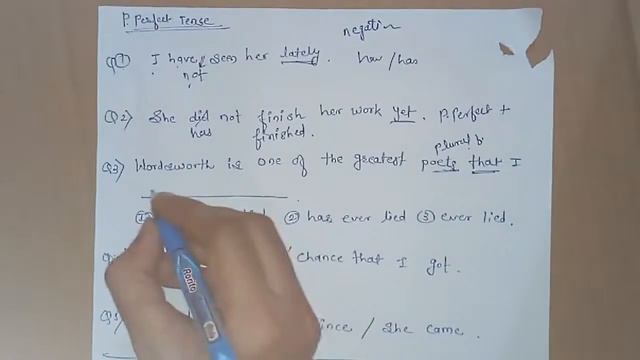 P. Perfect Tense
negative
Q1) I have seen her lately. have/has
not
Q2) She did not finish her work yet. P. Perfect +
has finished.
plural
Q3) Wordsworth is one of the greatest poets that I
② has ever lied ③ ever lied.
chance that I got.
since / She came.
Ponta